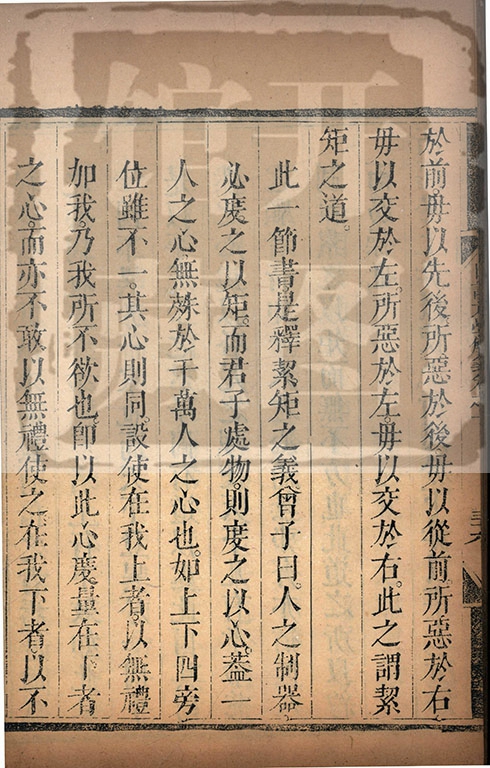 於前。毋以先後。所惡於後。毋以從前。所惡於右
毋以交於左。所惡於左。毋以交於右。此之謂絜
矩之道。
此一節書。是釋絜矩之義。曾子曰。人之制器。
必度之以矩。而君子處物。則度之以心。蓋一
人之心。無殊於千萬人之心也。如上下四旁
位雖不一。其心則同。設使在我上者。以無禮
加我。乃我所不欲也。卽以此心度量在下者
之心。而亦不敢以無禮使之。在我下者。以不